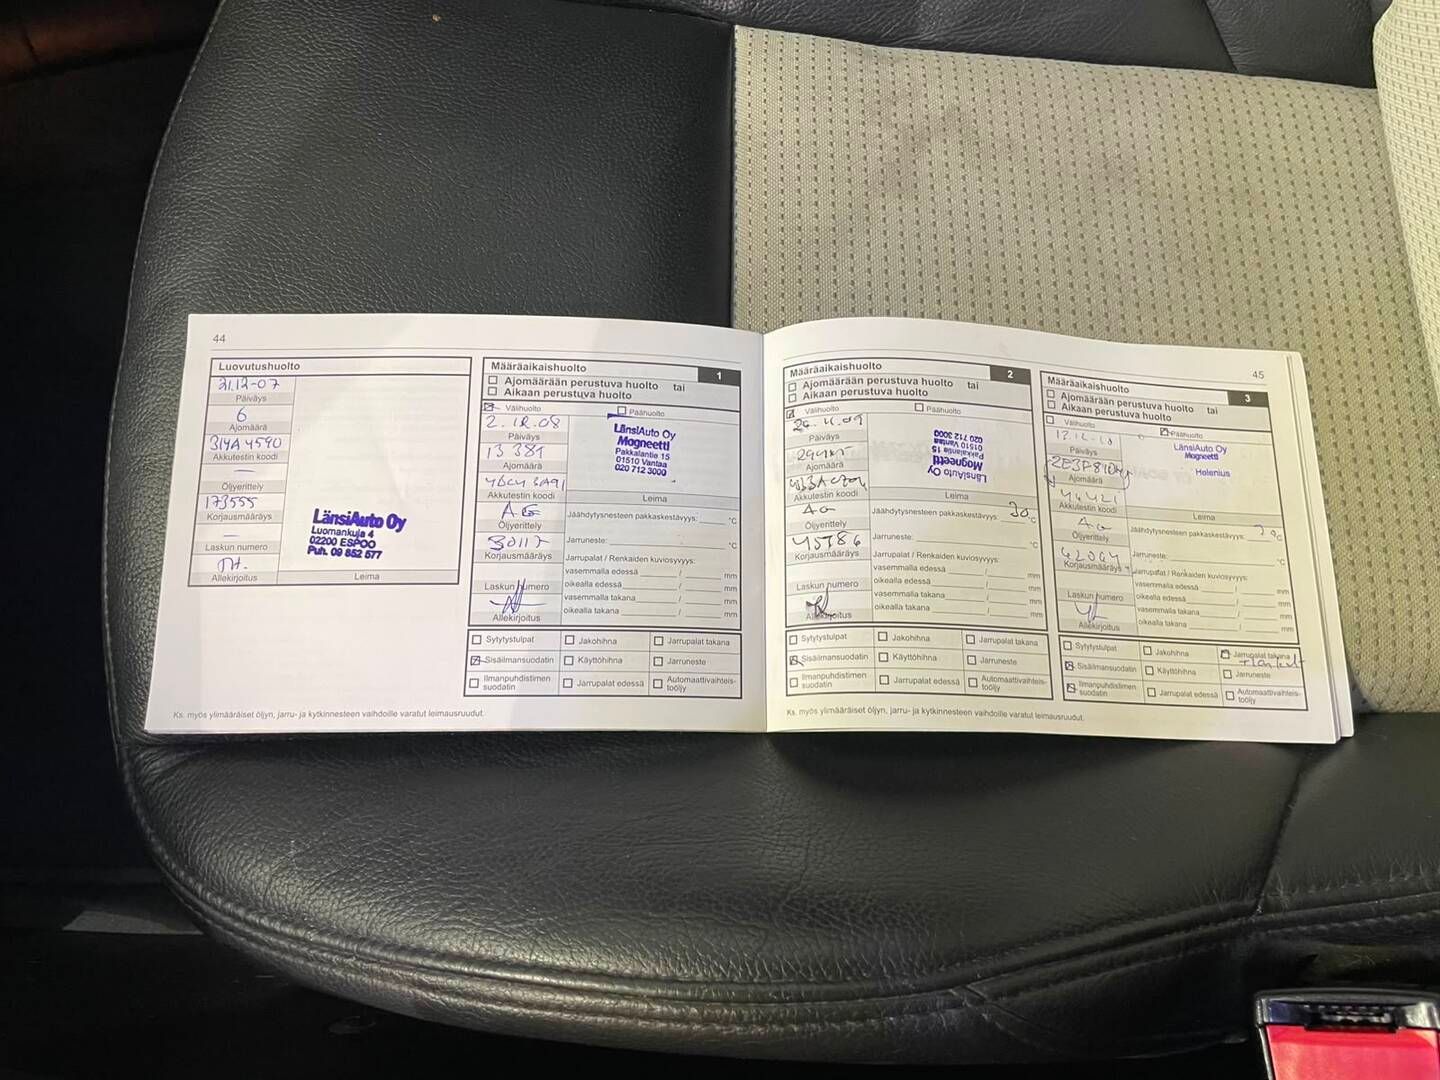 44
Luovutushuolto
21.12-07
Päiväys
6
Ajomäärä
314A 4590
Akkutestin koodi
—
Öljyerittely
173555
Korjausmääräys
—
Laskun numero
Allekirjoitus
LänsiAuto Oy
Luomankuja 4
02200 ESPOO
Puh. 09 852 577
Leima
Määräaikaishuolto
1
Ajomäärään perustuva huolto tai
Aikaan perustuva huolto
Välihuolto
Päähuolto
2.12.08
Päiväys
13 381
Ajomäärä
Akkutestin koodi
Öljyerittely
Korjausmääräys
Laskun numero
Allekirjoitus
LänsiAuto Oy
Magneetti
Pakkalantie 15
01510 Vantaa
020 712 3000
Leima
Jäähdytysnesteen pakkaskestävyys: °C
Jarruneste: °C
Jarrupalat / Renkaiden kuviosyvyys:
vasemmalla edessä / mm
oikealla edessä / mm
vasemmalla takana / mm
oikealla takana / mm
Sytytystulpat
Jakohihna
Jarrupalat takana
Sisäilmansuodatin
Käyttöhihna
Jarruneste
Ilmanpuhdistimen suodatin
Jarrupalat edessä
Automaattivaihteis-
tööljy
Ks. myös ylimääräiset öljyn, jarru- ja kytkinnesteen vaihdoille varatut leimausruudut.
45
Määräaikaishuolto
2
Ajomäärään perustuva huolto tai
Aikaan perustuva huolto
Välihuolto
Päähuolto
Päiväys
Ajomäärä
Akkutestin koodi
Öljyerittely
45786
Korjausmääräys
Laskun numero
Allekirjoitus
LänsiAuto Oy
Magneetti
Pakkalantie 15
01510 Vantaa
020 712 3000
Leima
Jäähdytysnesteen pakkaskestävyys: 30 °C
Jarruneste: °C
Jarrupalat / Renkaiden kuviosyvyys:
vasemmalla edessä / mm
oikealla edessä / mm
vasemmalla takana / mm
oikealla takana / mm
Sytytystulpat
Jakohihna
Jarrupalat takana
Sisäilmansuodatin
Käyttöhihna
Jarruneste
Ilmanpuhdistimen suodatin
Jarrupalat edessä
Automaattivaihteis-
tööljy
Ks. myös ylimääräiset öljyn, jarru- ja kytkinnesteen vaihdoille varatut leimausruudut.
Määräaikaishuolto
3
Ajomäärään perustuva huolto tai
Aikaan perustuva huolto
Välihuolto
Päähuolto
Päiväys
Ajomäärä
Akkutestin koodi
Öljyerittely
Korjausmääräys
Laskun numero
Allekirjoitus
LänsiAuto Oy
Magneetti
Helenius
Leima
Jäähdytysnesteen pakkaskestävyys: °C
Jarruneste: °C
Jarrupalat / Renkaiden kuviosyvyys:
vasemmalla edessä / mm
oikealla edessä / mm
vasemmalla takana / mm
oikealla takana / mm
Sytytystulpat
Jakohihna
Jarrupalat takana
Sisäilmansuodatin
Käyttöhihna
Jarruneste
Ilmanpuhdistimen suodatin
Jarrupalat edessä
Automaattivaihteis-
tööljy